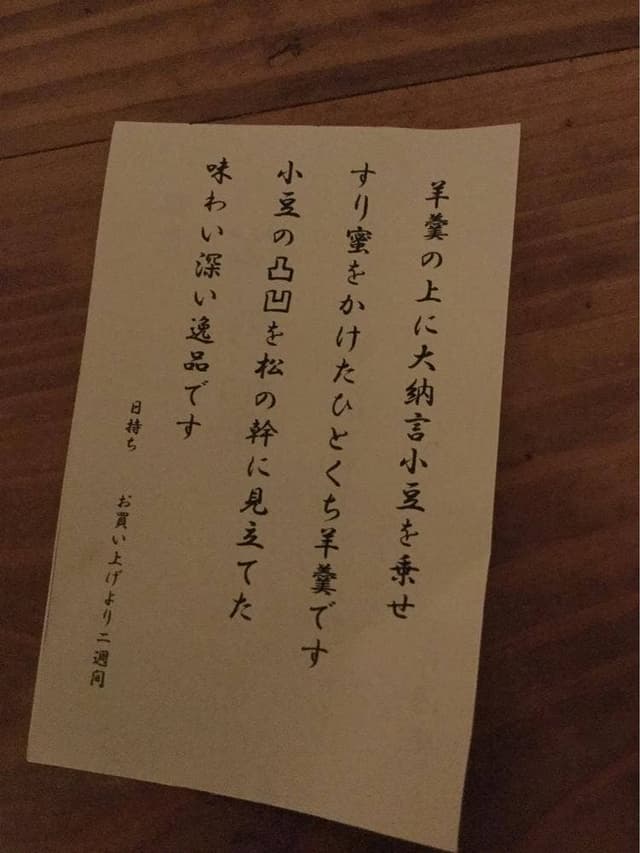 羊羹の上に大納言小豆を乗せ
すり蜜をかけたひとくち羊羹です
小豆の凸凹を松の幹に見立てた
味わい深い逸品です
日持ち　お買い上げより二週間